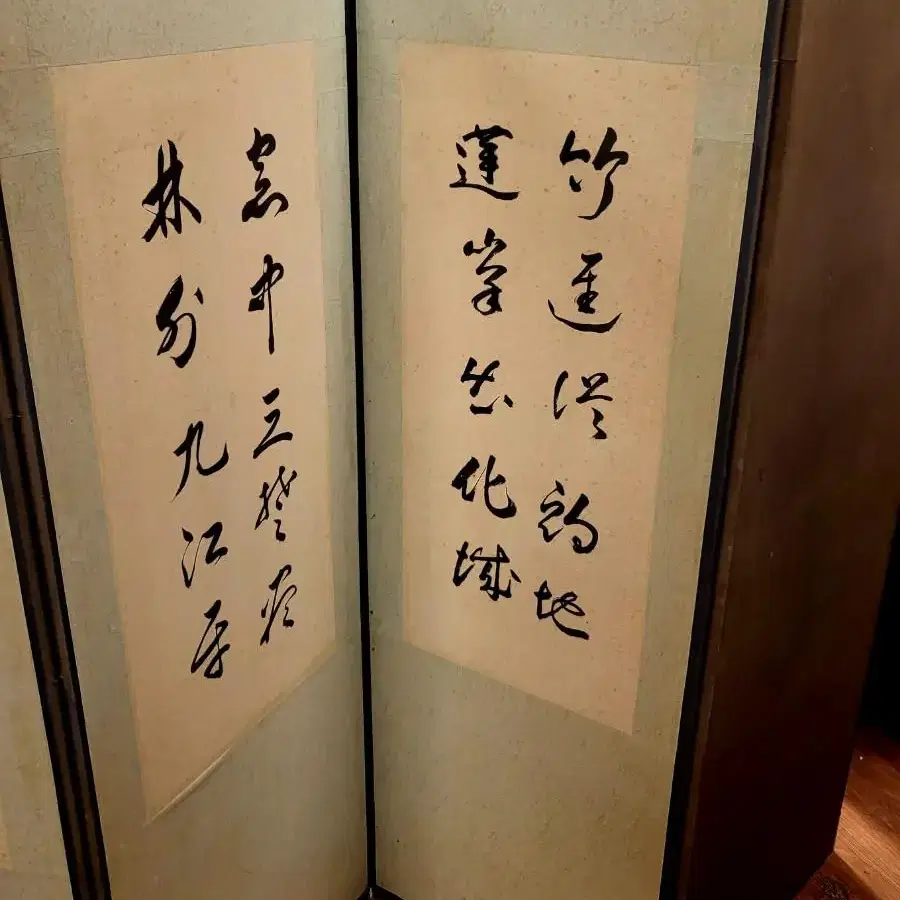 竹逕從初地
蓮峯出化城
窓中三楚尽
林外九江平